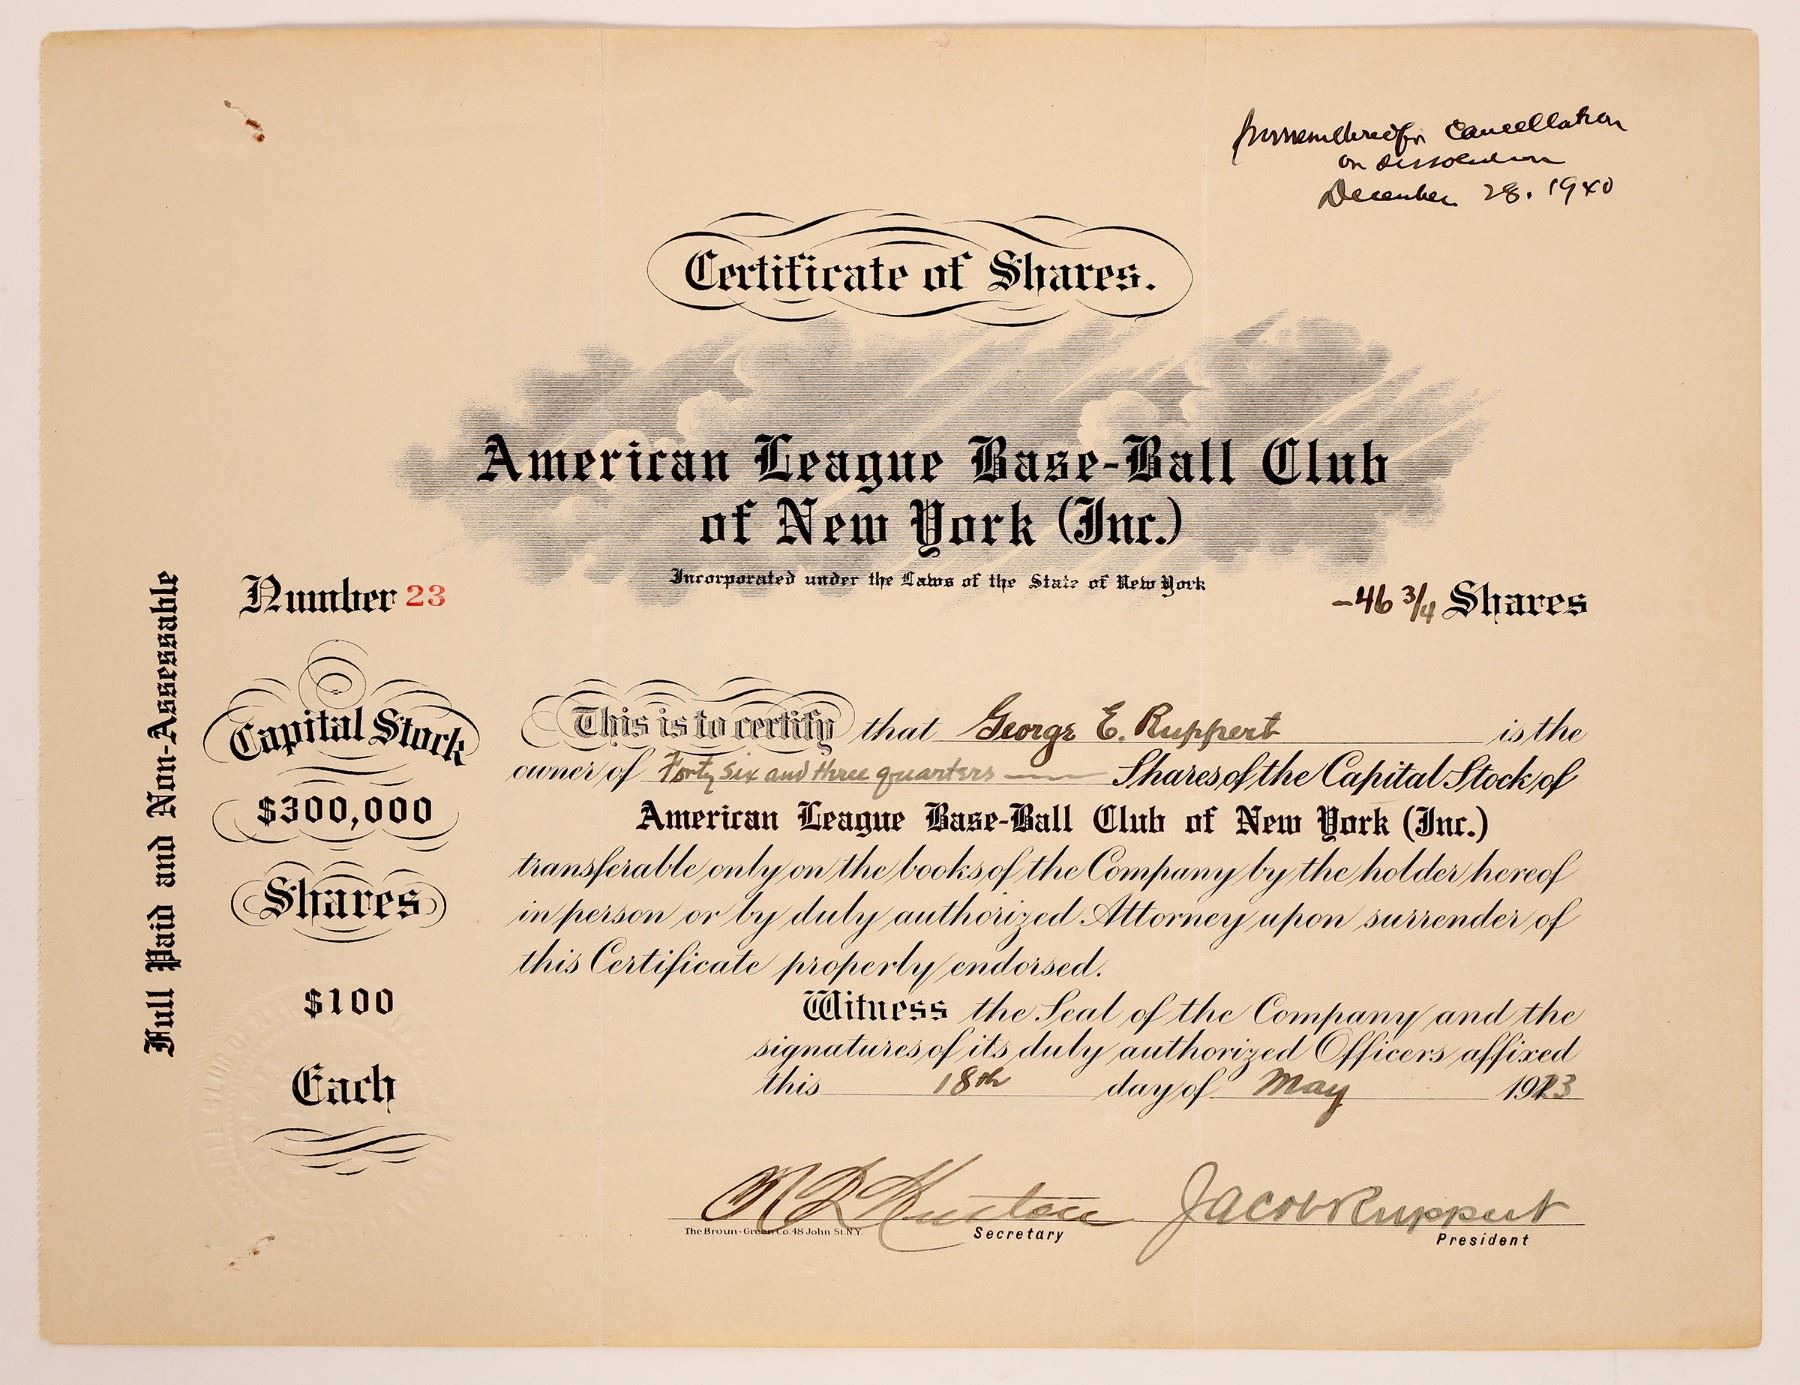 Surrendered for Cancellation
on dissolution
December 28. 1940
Certificate of Shares.
American League Base-Ball Club
of New York (Inc.)
Incorporated under the Laws of the State of New York
Number 23
-46 3/4 Shares
Full Paid and Non-Assessable
Capital Stock
$300,000
Shares
$100
Each
This is to certify that George E. Ruppert is the
owner of Forty six and three quarters Shares of the Capital Stock of
American League Base-Ball Club of New York (Inc.)
transferable only on the books of the Company by the holder hereof
in person or by duly authorized Attorney upon surrender of
this Certificate properly endorsed.
Witness the Seal of the Company and the
signatures of its duly authorized Officers affixed
this 18th day of May 1923
Jacob Ruppert
The Broun-Green Co. 48 John St. N.Y.
Secretary
President